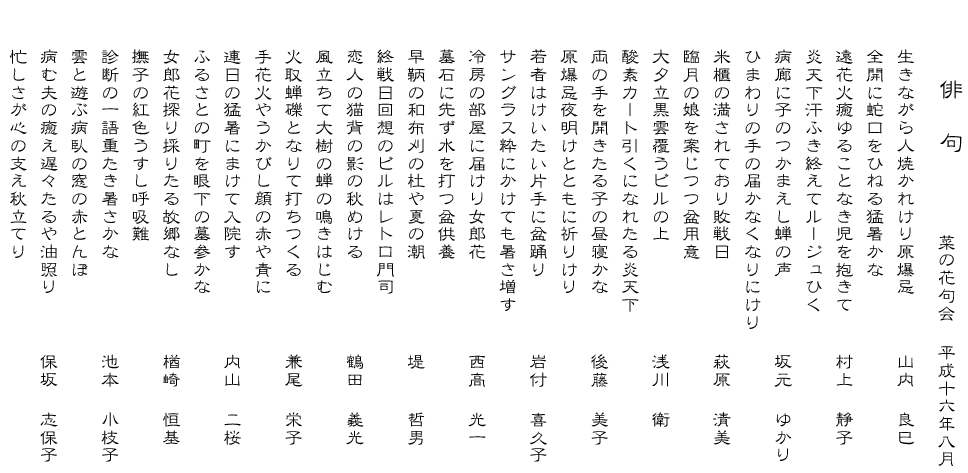 俳句　菜の花句会　平成十六年八月
生きながら人焼かれけり原爆忌　山内　良巳
全開に蛇口をひねる猛暑かな
遠花火癒ゆることなき児を抱きて　村上　靜子
炎天下汗ふき終えてルージュひく
病廊に子のつかまえし蝉の声　坂元　ゆかり
ひまわりの手の届かなくなりにけり
米櫃の満されており敗戦日　萩原　清美
臨月の娘を案じつつ盆用意
大夕立黒雲覆うビルの上　浅川　衛
酸素カート引くになれたる炎天下
両の手を開きたる子の昼寝かな　後藤　美子
原爆忌夜明けとともに祈りけり
若者はけいたい片手に盆踊り　岩付　喜久子
サングラス粋にかけても暑さ増す
冷房の部屋に届けり女郎花　西高　光一
墓石に先ず水を打つ盆供養
早鞆の和布刈の杜や夏の潮　堤　哲男
終戦日回想のビルはレトロ門司
恋人の猫背の影の秋めける　鶴田　義光
風立ちて大樹の蝉の鳴きはじむ
火取蝉礫となりて打ちつくる　兼尾　栄子
手花火やうかびし顔の赤や青に
連日の猛暑にまけて入院す　内山　二桜
ふるさとの町を眼下の墓参かな
女郎花探り採りたる故郷なし　楢崎　恒基
撫子の紅色うすし呼吸難
診断の一語重たき暑さかな　池本　小枝子
雲と遊ぶ病臥の窓の赤とんぼ
病む夫の癒え遅々たるや油照り　保坂　志保子
忙しさが心の支え秋立てり